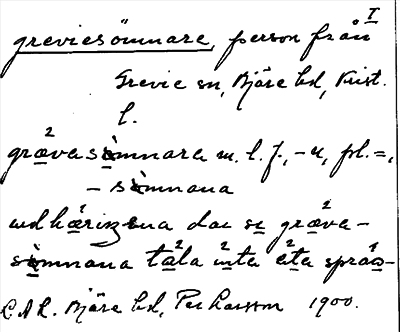 I
greviesömnare, person från
Grevie sn, Bjäre hd, Krist.
l.
grævasömnara m. l. f., -n, pl. =,
- sömnana
udhæriz na dar se græva-
sömnana tala inta eta språ-
L.A.L. Bjäre hd, Per Larsson 1900.